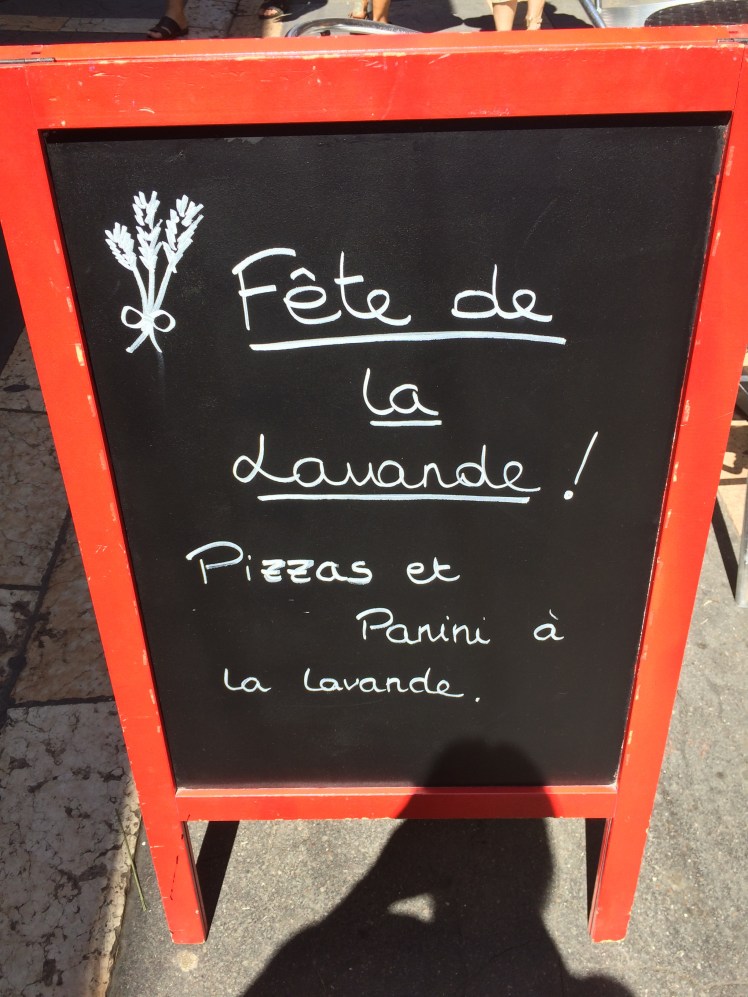 Fête de
la
Lavande !
Pizzas et
Panini à
la lavande.